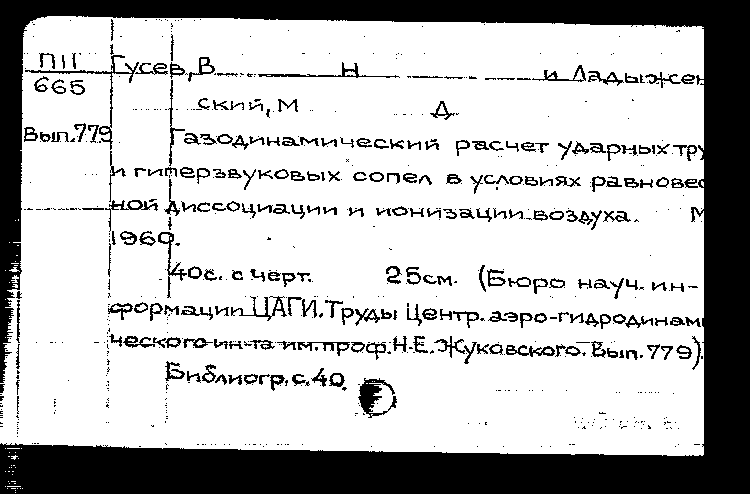 ПIГ Гусев, В Н и Ладыжен
665 ский, М Д
Вып.779 Газодинамический расчет ударных тру
и гиперзвуковых сопел в условиях равновес
ной диссоциации и ионизации воздуха. М
1960.
40с. с черт. 25см. (Бюро науч. ин-
формации ЦАГИ. Труды Центр. аэро-гидродинами
ческого ин-та им. проф. Н.Е. Жуковского. Вып. 779).
Библиогр. с. 40.